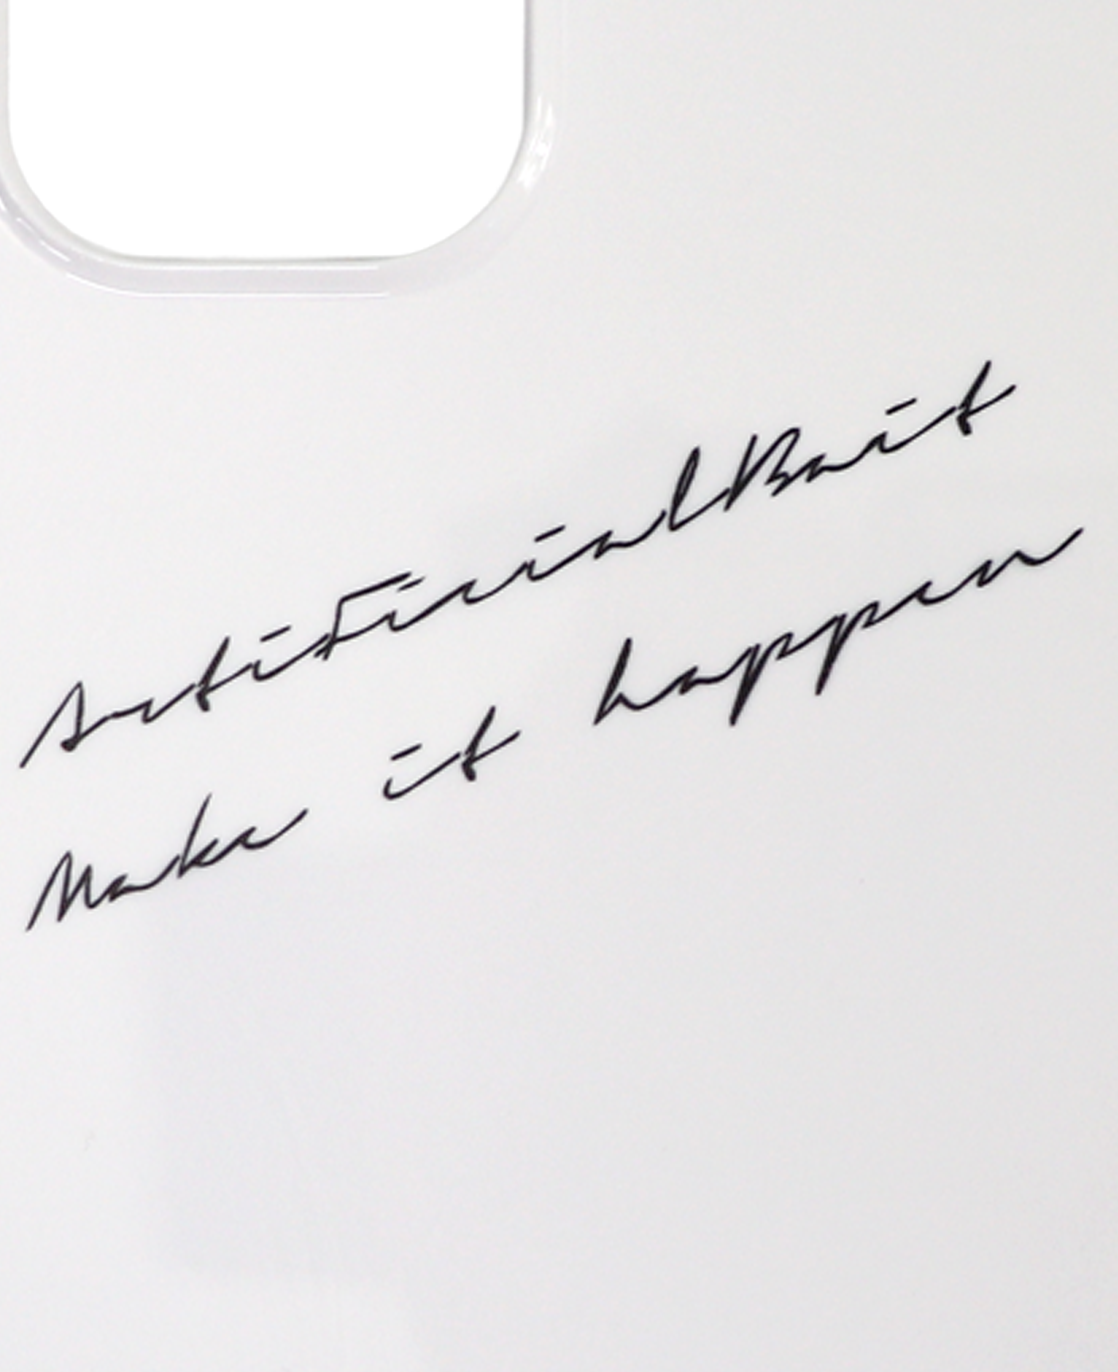 ArtiFicialBait
Make it happen